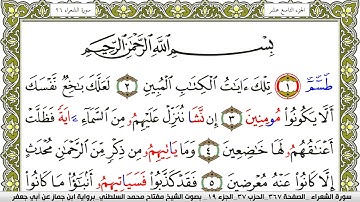 الجزء التاسع عشر سورة الشعراء ٢٦
بِسْمِ اللَّهِ الرَّحْمَٰنِ الرَّحِيمِ
طسٓمٓ ١ تِلْكَ ءَايَٰتُ الْكِتَٰبِ الْمُبِينِ ٢ لَعَلَّكَ بَٰخِعٌ نَّفْسَكَ
أَلَّا يَكُونُوا مُومِنِينَ ٣ إِن نَّشَا نُنَزِّلْ عَلَيْهِمُ مِنَ السَّمَآءِ ءَايَةً فَظَلَّتْ
أَعْنَٰقُهُمُ لَهَا خَٰضِعِينَ ٤ وَمَا يَاتِيهِمُ مِن ذِكْرٍ مِّنَ الرَّحْمَٰنِ مُحْدَثٍ
إِلَّا كَانُوا عَنْهُ مُعْرِضِينَ ٥ فَقَدْ كَذَّبُوا فَسَيَاتِيهِمُ أَنۢبَٰٓؤُا مَا كَانُوا
سورة الشعراء . الصفحة ٣٦٧ الحزب ٣٧ . الجزء ١٩ . بصوت الشيخ مفتاح محمد السلطني . برواية ابن جماز عن أبي جعفر